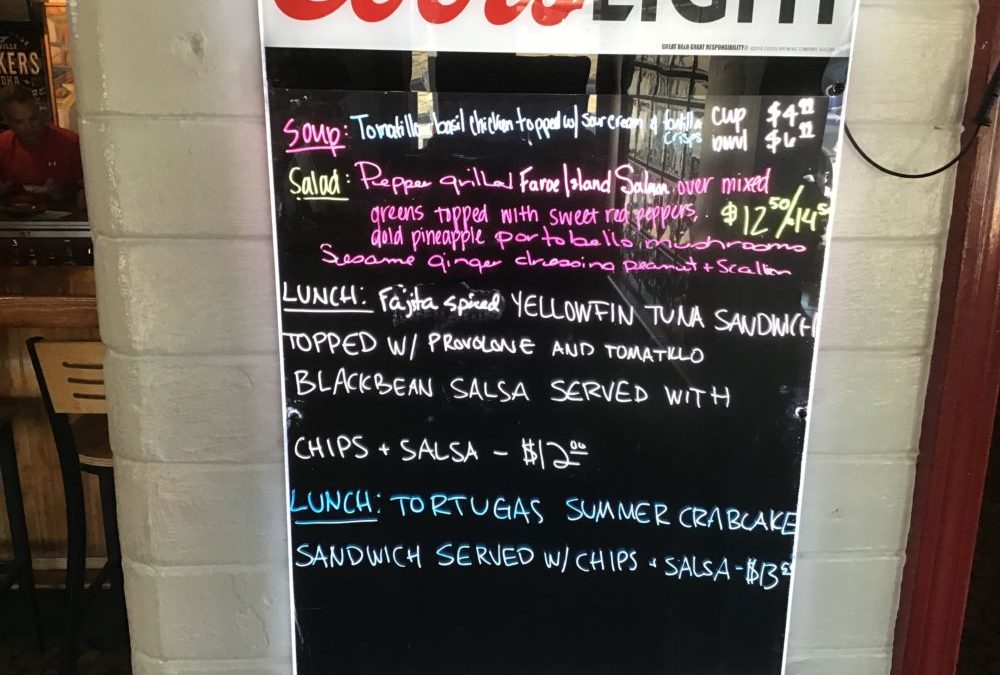 Coors LIGHT
GREAT BEER GREAT RESPONSIBILITY®
KERS
Soup: Tomatillo basil chicken topped w/ sour cream & tortilla cup $4
crisps bowl $6
Salad: Pepper grilled Faroe Island Salmon over mixed
greens topped with sweet red peppers, $12.50/14.5
gold pineapple portobello mushrooms
Sesame ginger dressing peanut + Scallion
LUNCH: Fajita spiced YELLOWFIN TUNA SANDWICH
TOPPED W/ PROVOLONE AND TOMATILLO
BLACKBEAN SALSA SERVED WITH
CHIPS + SALSA - $12.00
LUNCH: TORTUGAS SUMMER CRABCAKE
SANDWICH SERVED W/ CHIPS + SALSA - $13